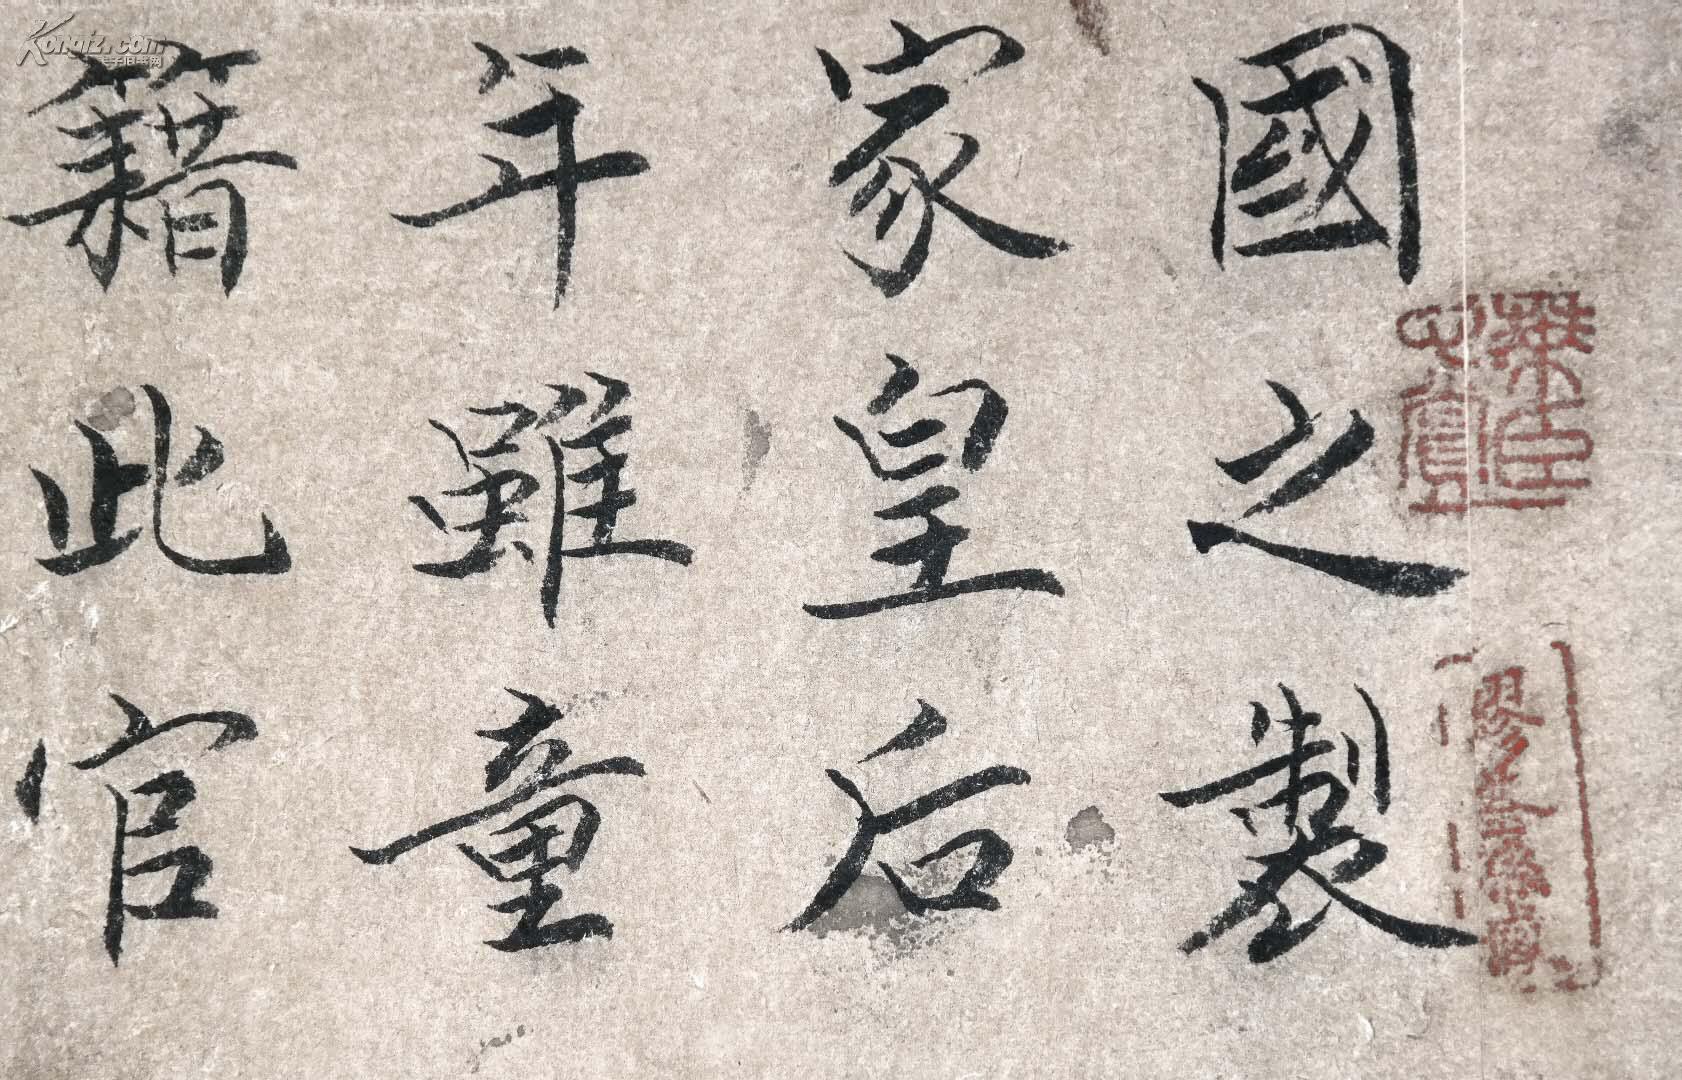 國之製
家皇后
年雖童
籍此官
Kongfz.com